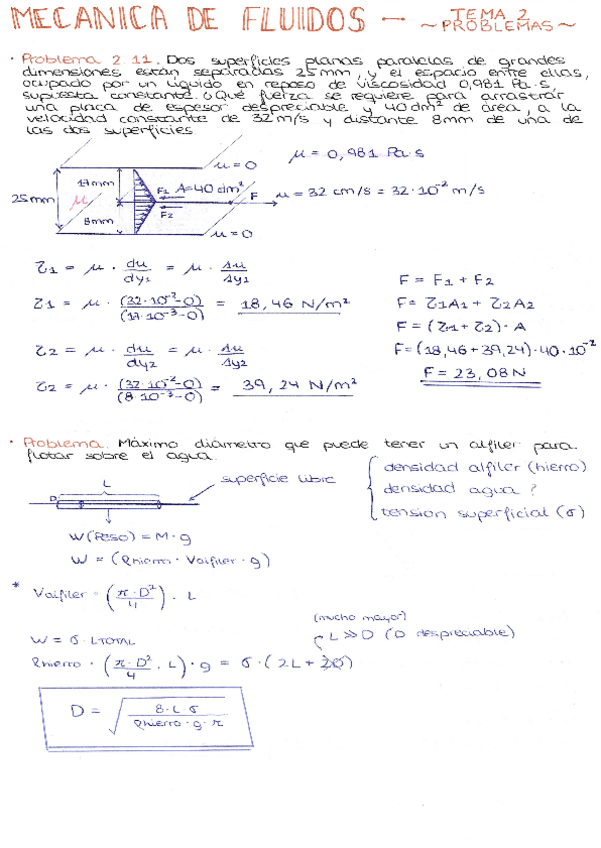 MECANICA DE FLUIDOS - TEMA 2
~ PROBLEMAS ~
· Problema 2.11. Dos superficies planas paralelas de grandes
dimensiones están separadas 25mm, y el espacio entre ellas,
ocupado por un líquido en reposo de viscosidad 0,981 Pa·s,
supuesta constante. ¿Qué fuerza se requiere para arrastrar
una placa de espesor despreciable y 40dm² de área, a la
velocidad constante de 32m/s y distante 8mm de una de
las dos superficies
μ = 0
μ = 0,981 Pa·s
25mm
17mm
μ
F1
A=40 dm²
F
μ = 32 cm/s = 32·10⁻² m/s
8mm
F2
μ = 0
τ1 = μ · du/dy1 = μ · Δu/Δy1
τ1 = μ · (32·10⁻²-0)/(17·10⁻³-0) = 18,46 N/m²
τ2 = μ · du/dy2 = μ · Δu/Δy2
τ2 = μ · (32·10⁻²-0)/(8·10⁻³-0) = 39,24 N/m²
F = F1 + F2
F = τ1A1 + τ2A2
F = (τ1+τ2)·A
F=(18,46+39,24)·40·10⁻²
F = 23,08N
· Problema. Máximo diámetro que puede tener un alfiler para
flotar sobre el agua.
L
superficie libre
D
densidad alfiler (hierro)
densidad agua ?
tension superficial (σ)
W(Peso) = M·g
W = (ρhierro · Valfiler · g)
* Valfiler = (π·D²/4) · L
(mucho mayor)
L >> D (D despreciable)
W = σ · LTOTAL
ρhierro · (π·D²/4 · L) · g = σ · (2L + 2D)
D = √(8·L·σ/ρhierro·g·π)